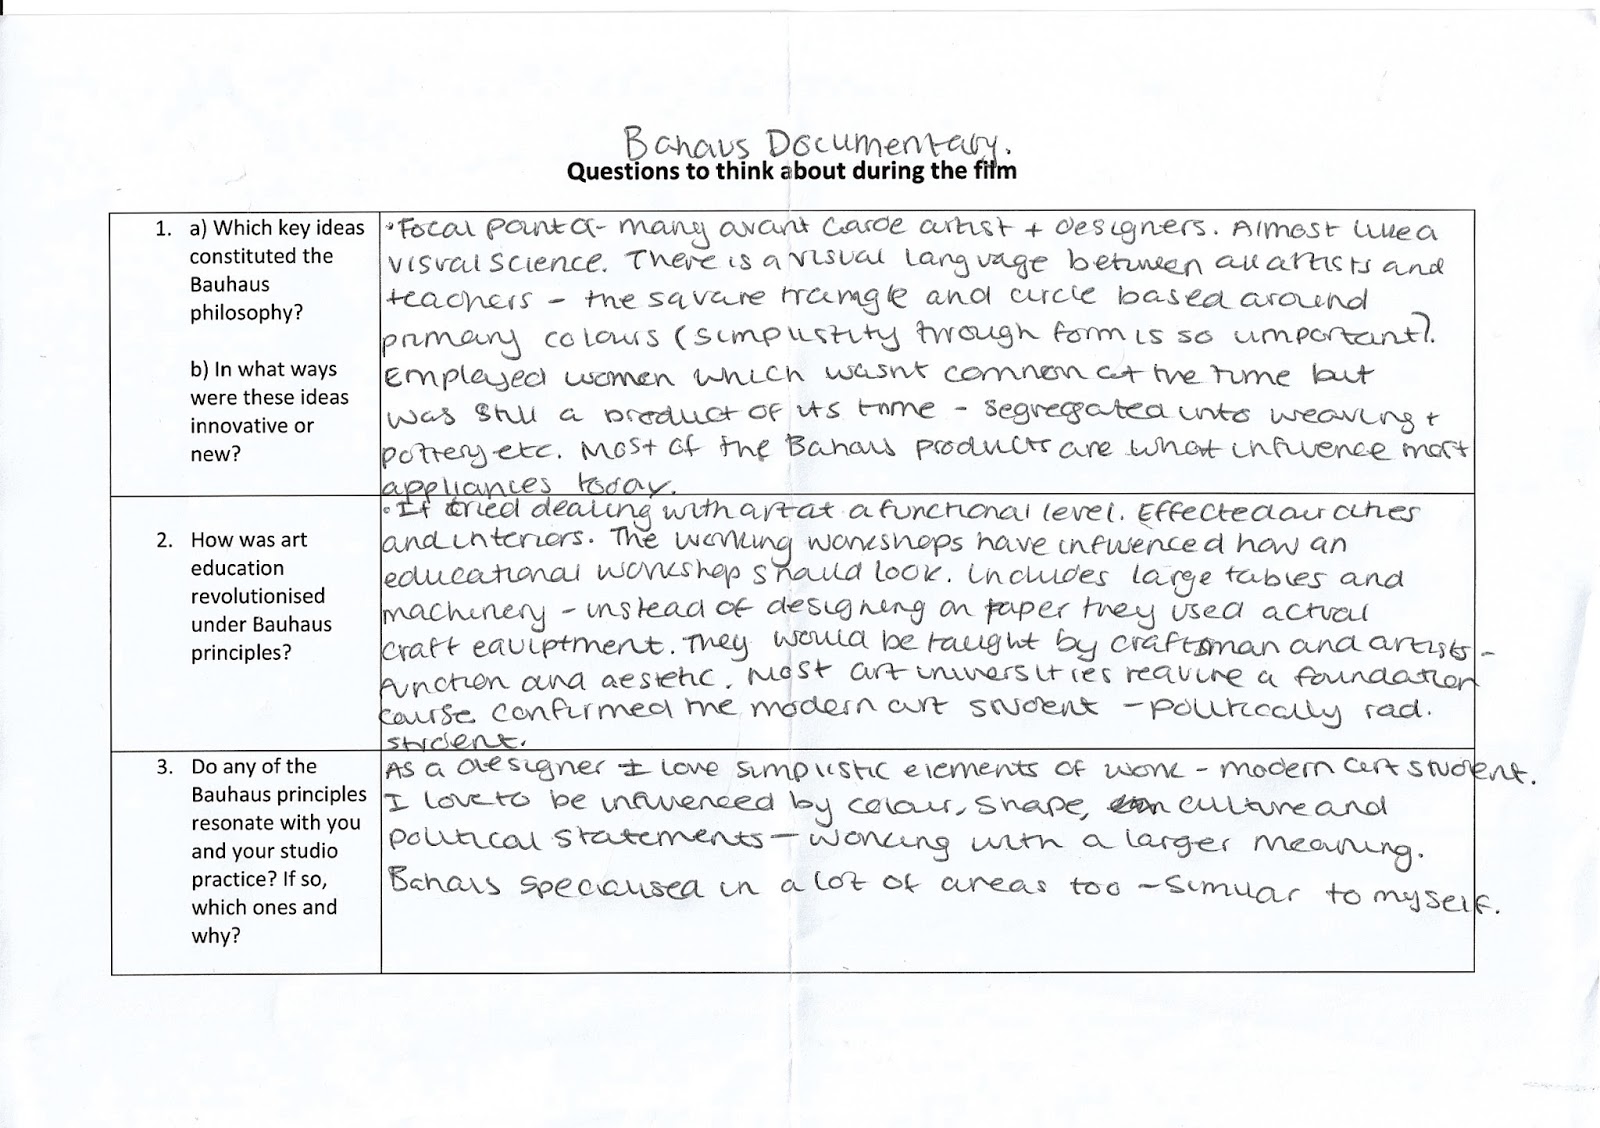 Bahaus Documentary.
Questions to think about during the film
1. a) Which key ideas
constituted the
Bauhaus
philosophy?
b) In what ways
were these ideas
innovative or
new?
•Focal point - many avant Garde artist + designers. Almost like a
visual science. There is a visual language between all artists and
teachers - the square triangle and circle based around
primary colours (simplistity through form is so important).
Employed women which wasnt common at the time but
was still a product of its time - segregated into weaving +
pottery etc. Most of the Bahaus products are what influence most
appliances today.
2. How was art
education
revolutionised
under Bauhaus
principles?
•It tried dealing with art at a functional level. Effected our cities
and interiors. The working workshops have influenced how an
educational workshop should look. Includes large tables and
machinery - instead of designing on paper they used actual
craft equiptment. They would be taught by craftsman and artists -
function and aestetic. Most art universities require a foundation
course confirmed the modern art student - politically rad.
student.
3. Do any of the
Bauhaus principles
resonate with you
and your studio
practice? If so,
which ones and
why?
As a designer I love simplistic elements of work - modern art student.
I love to be influenced by colour, shape, culture and
political statements - working with a larger meaning.
Bahaus specialised in a lot of areas too - similar to myself.